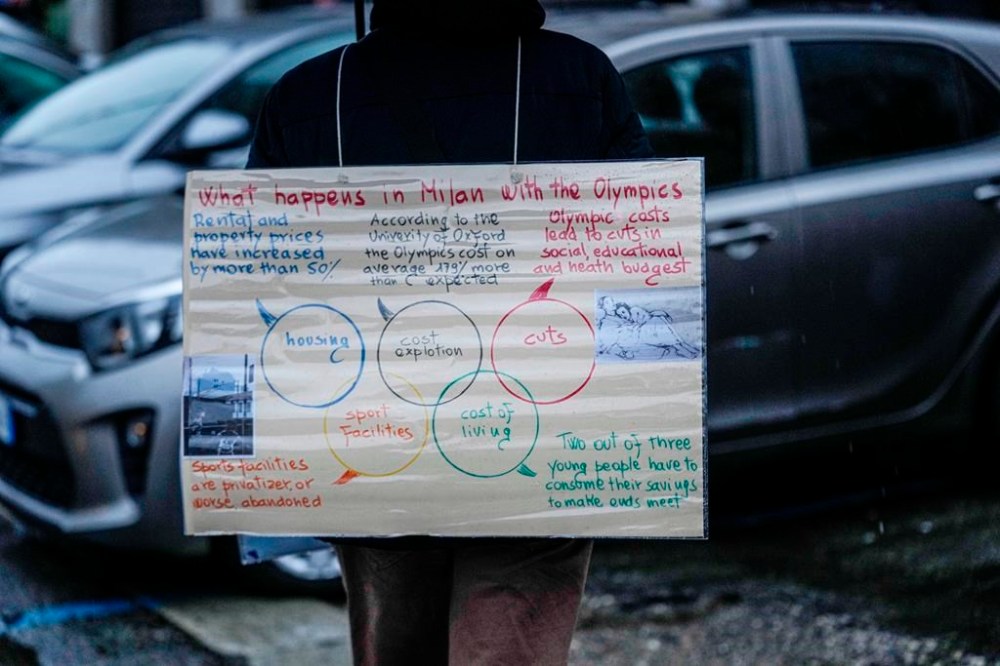 What happens in Milan with the Olympics
Rental and
property prices
have increased
by more than 50%
According to the
Univerity of Oxford
the Olympics cost on
average 179% more
than C expected
Olympic casts
lead to cuts in
social, educational
and heath budgest
housing
cost
explotion
cuts
sport
Facilities
cost of
living
Sports facilities
are privatizer, or
worse, abandoned
Two out of three
young people have to
consome their savings
to make ends meet